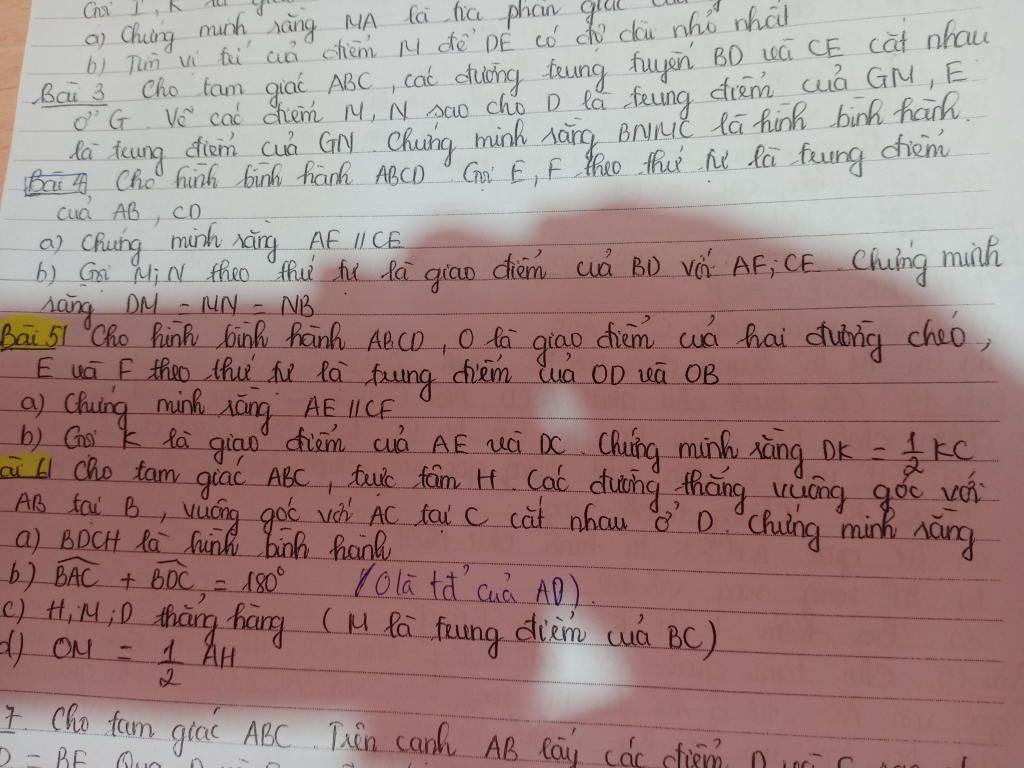 Gọi I, K là
a) Chứng minh rằng MA là tia phân giác
b) Tìm vị trí của điểm M để DE có độ dài nhỏ nhất
Bài 3 Cho tam giác ABC, các đường trung tuyến BD và CE cắt nhau
ở G. Vẽ các điểm M, N sao cho D là trung điểm của GM, E
là trung điểm của GN Chứng minh rằng BNMC là hình bình hành.
Bài 4 Cho hình bình hành ABCD Gọi E, F theo thứ tự là trung điểm
của AB, CD
a) Chứng minh rằng AF // CE
b) Gọi M; N theo thứ tự là giao điểm của BD với AF; CE Chứng minh
rằng DM = MN = NB
Bài 5 Cho hình bình hành ABCD, O là giao điểm của hai đường chéo,
E và F theo thứ tự là trung điểm của OD và OB
a) Chứng minh rằng AE // CF
b) Gọi K là giao điểm của AE và DC. Chứng minh rằng DK = 1/2 KC
ài 6 Cho tam giác ABC, trực tâm H. Các đường thẳng vuông góc với
AB tại B, vuông góc với AC tại C cắt nhau ở D. Chứng minh rằng
a) BDCH là hình bình hành
b) BAC + BDC = 180° (O là tđ của AD).
c) H; M; D thẳng hàng (M là trung điểm của BC)
d) OM = 1/2 AH
7 Cho tam giác ABC. Trên cạnh AB lấy các điểm D và
= BE Qua